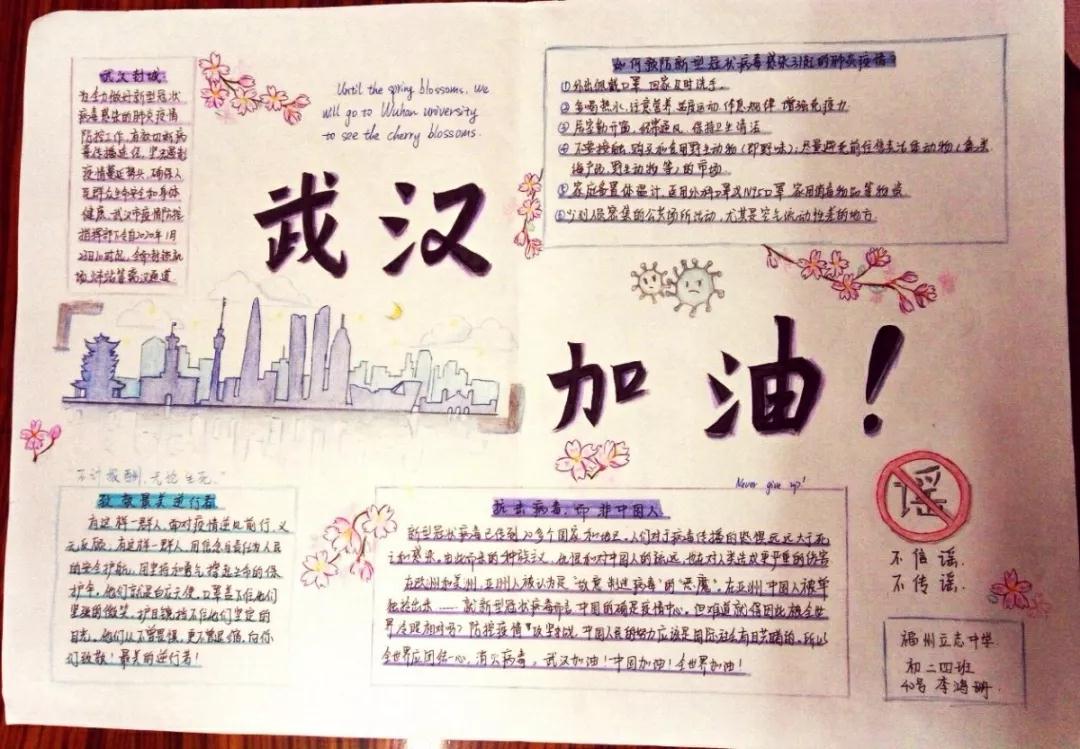 武汉封城
为全力做好新型冠状
病毒感染的肺炎疫情
防控工作,有效切断病
毒传播途径,坚决遏制
疫情蔓延势头,确保人
民群众生命安全和身体
健康,武汉市疫情防控
指挥部下令自2020年1月
23日10时起,
机
场、火车站等离汉通道
Until the spring blossoms, we
will go to Wuhan university
to see the cherry blossoms.
如何预防新型冠状病毒感染引起的肺炎疫情?
①外出佩戴口罩 回家及时洗手。
②多喝热水,注意营养 适度运动,作息规律 增强免疫力
③居室勤开窗,经常通风,保持卫生清洁
④不要接触、购买和食用野生动物(即野味);尽量避免前往售卖活体动物(禽类
海产品、野生动物等)的市场.
⑤家庭备置体温计,医用外科口罩或N95口罩 家用消毒物品等物资
⑥少到人员密集的公共场所活动,尤其是空气流动性差的地方
武汉
加油!
"不计报酬,无论生死."
致敬最美逆行者
有这样一群人,面对疫情逆风前行,义
无反顾,有这样一群人,用信念与责任为人民
的安全护航,用坚持和勇气撑起生命的保
护伞,他们就是白衣天使.口罩盖不住他们
坚强的微笑,护目镜挡不住他们坚定的
目光,他们从不曾畏惧,更不曾退缩.向你
们致敬!最美的逆行者!
Never give up!
抗击病毒,而非中国人
新型冠状病毒已传到20多个国家和地区.人们对于病毒传播的恐惧远远大于死
亡和感染,由此带来的种族主义、仇恨和对中国人的疏远,也会对人类造成更严重的伤害
在欧洲和美洲,亚洲人被认为是"故意制造病毒"的"恶魔",在亚洲,中国人被单
独拎出来……就新型冠状病毒而言,中国的确是疫情中心,但难道就得因此被全世
界冷眼相对吗?防控疫情攻坚战,中国人民的努力应该是国际社会有目共睹的,所以
全世界应团结一心,消灭病毒,武汉加油!中国加油!全世界加油!
谣
不信谣.
不传谣.
福州立志中学
初二四班
40号 李鸿珊